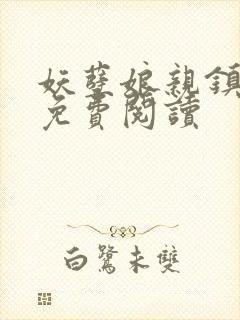 妖孽娘親鎮
免費閱讀
白鷺未雙